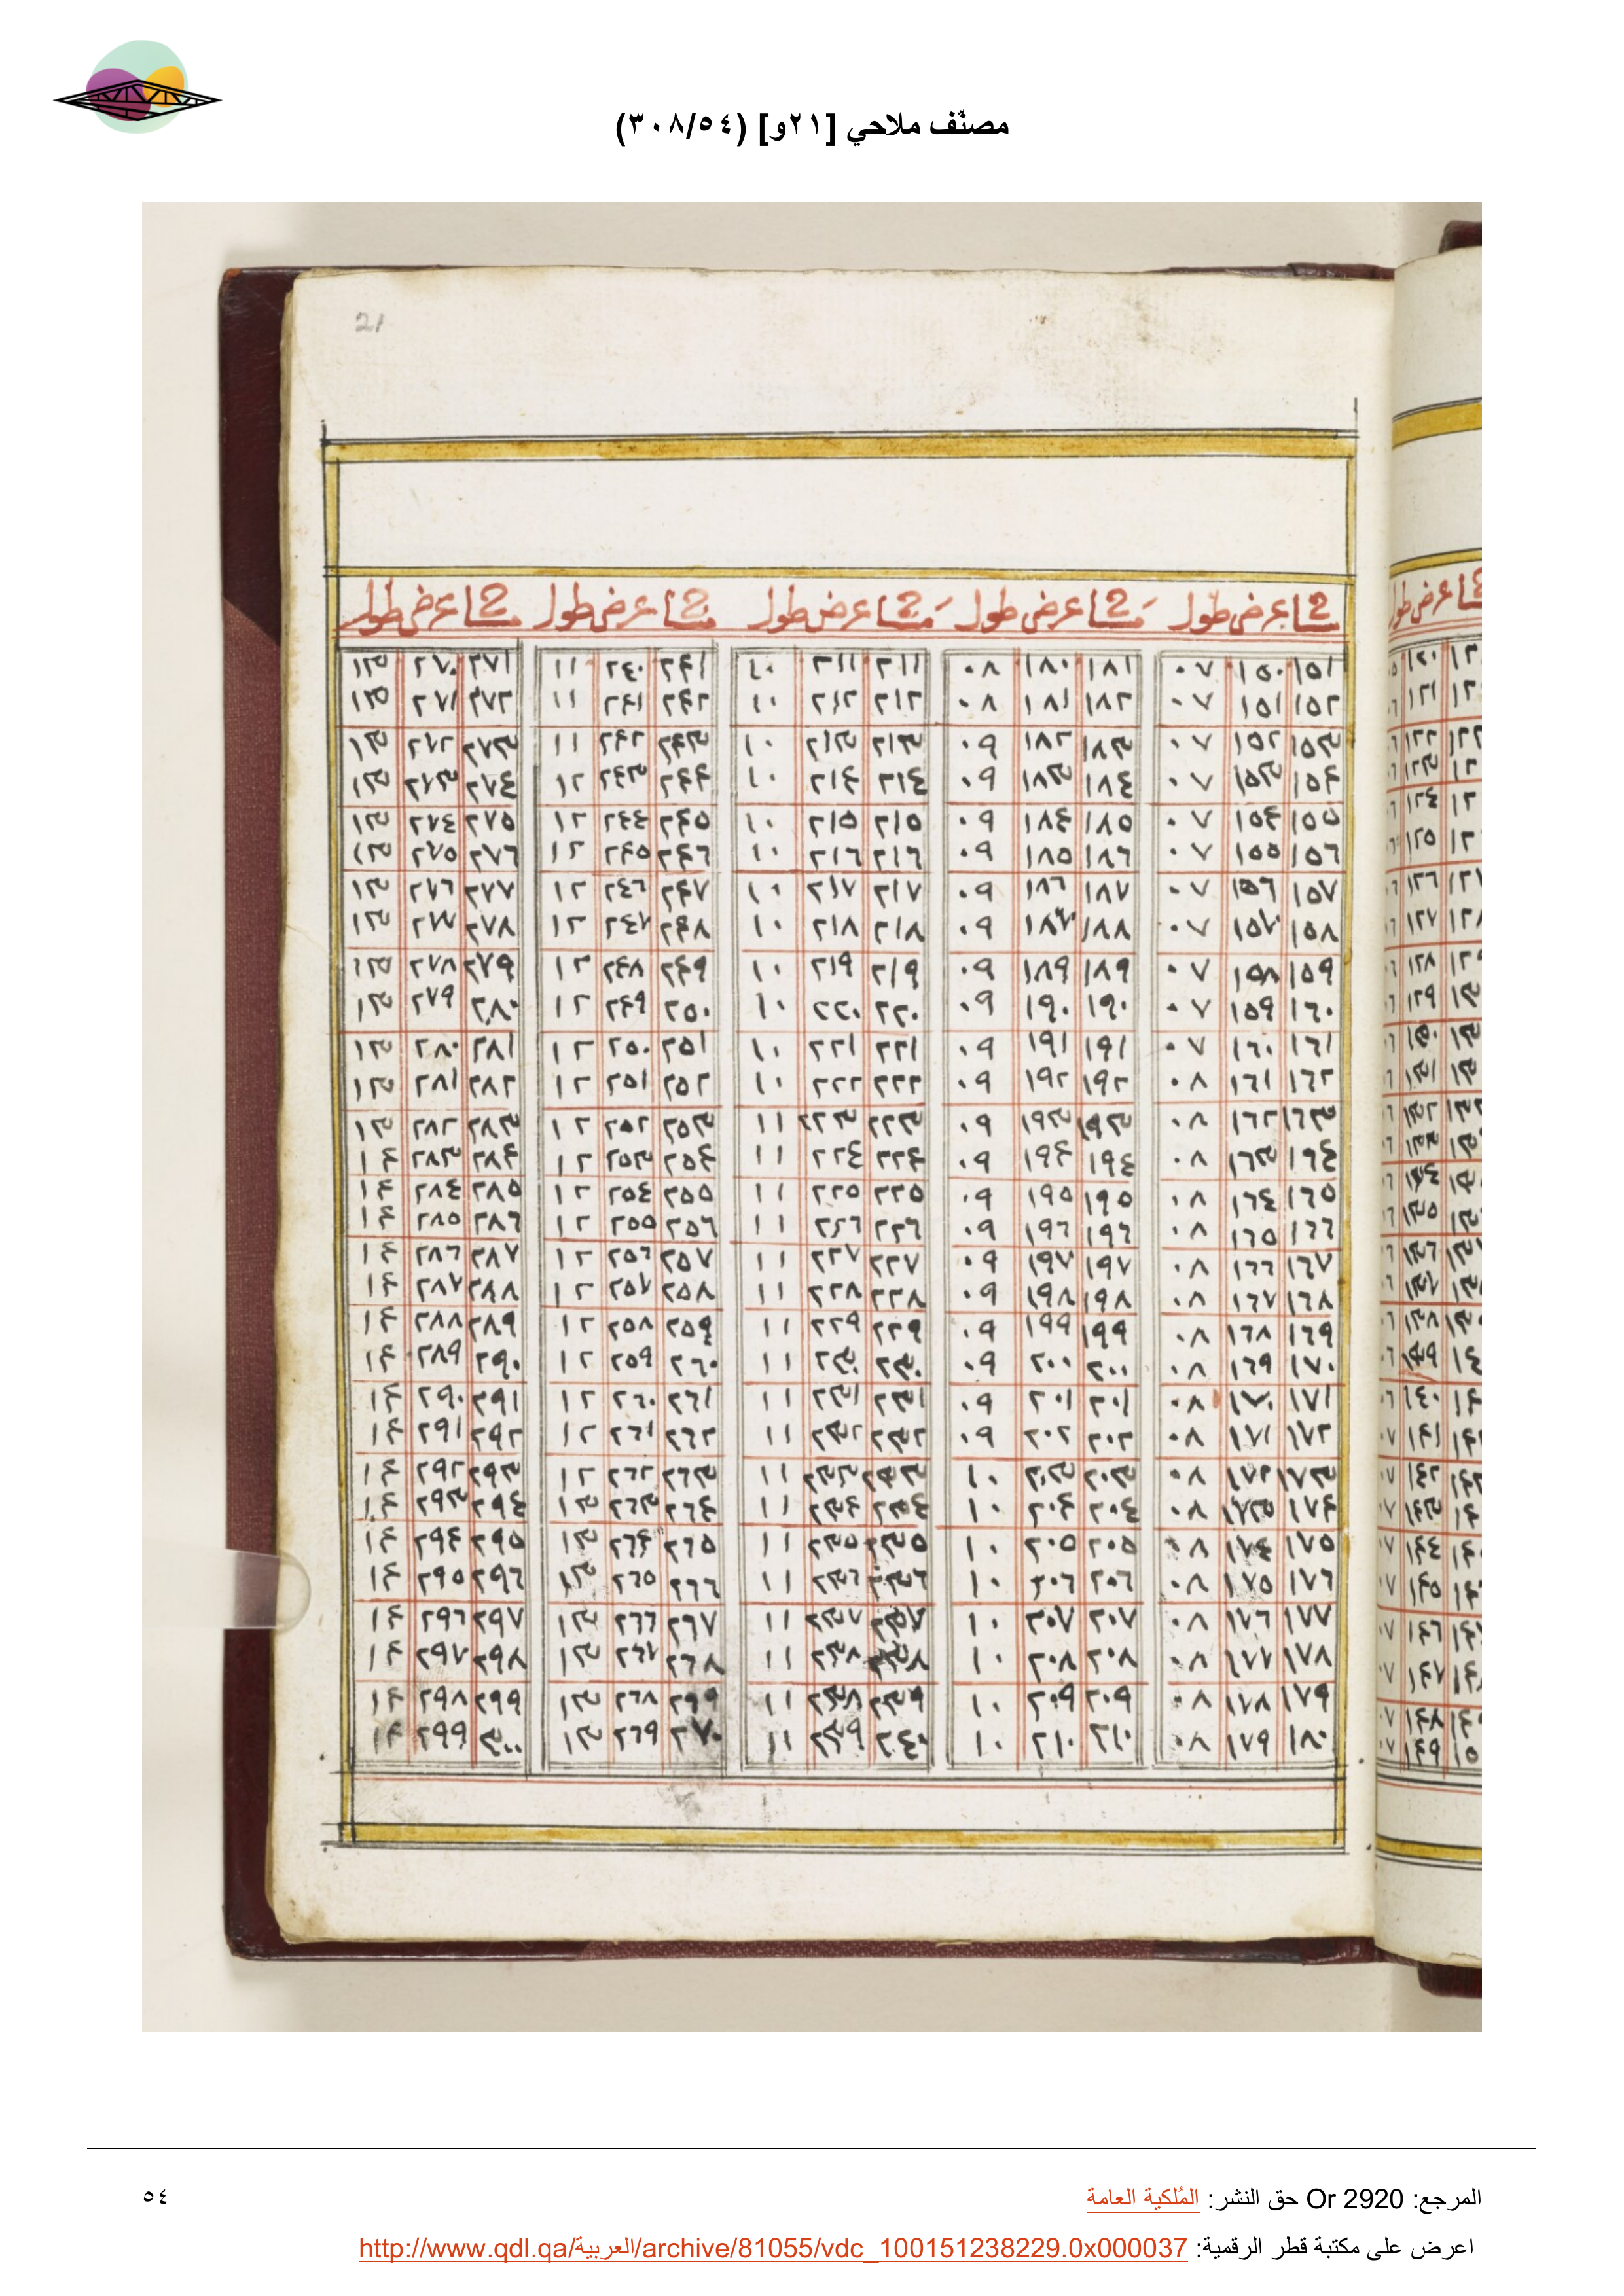 مصنّف ملاحي [٢١و] (٣٠٨/٥٤)
21
مشا عرض طول مشا عرض طول مشا عرض طول مشا عرض طول مشا عرض طول
١٥١ ١٥٠ ٠٧ ١٨١ ١٨٠ ٠٨ ٢١١ ٢١١ ١٠ ٢٤١ ٢٤٠ ١١ ٢٧١ ٢٧٠ ١٣
١٥٢ ١٥١ ٠٧ ١٨٢ ١٨١ ٠٨ ٢١٢ ٢١٢ ١٠ ٢٤٢ ٢٤١ ١١ ٢٧٢ ٢٧١ ١٣
١٥٣ ١٥٢ ٠٧ ١٨٣ ١٨٢ ٠٩ ٢١٣ ٢١٣ ١٠ ٢٤٣ ٢٤٢ ١١ ٢٧٣ ٢٧٢ ١٣
١٥٤ ١٥٣ ٠٧ ١٨٤ ١٨٣ ٠٩ ٢١٤ ٢١٤ ١٠ ٢٤٤ ٢٤٣ ١٢ ٢٧٤ ٢٧٣ ١٣
١٥٥ ١٥٤ ٠٧ ١٨٥ ١٨٤ ٠٩ ٢١٥ ٢١٥ ١٠ ٢٤٥ ٢٤٤ ١٢ ٢٧٥ ٢٧٤ ١٣
١٥٦ ١٥٥ ٠٧ ١٨٦ ١٨٥ ٠٩ ٢١٦ ٢١٦ ١٠ ٢٤٦ ٢٤٥ ١٢ ٢٧٦ ٢٧٥ ١٣
١٥٧ ١٥٦ ٠٧ ١٨٧ ١٨٦ ٠٩ ٢١٧ ٢١٧ ١٠ ٢٤٧ ٢٤٦ ١٢ ٢٧٧ ٢٧٦ ١٣
١٥٨ ١٥٧ ٠٧ ١٨٨ ١٨٧ ٠٩ ٢١٨ ٢١٨ ١٠ ٢٤٨ ٢٤٧ ١٢ ٢٧٨ ٢٧٧ ١٣
١٥٩ ١٥٨ ٠٧ ١٨٩ ١٨٩ ٠٩ ٢١٩ ٢١٩ ١٠ ٢٤٩ ٢٤٨ ١٢ ٢٧٩ ٢٧٨ ١٣
١٦٠ ١٥٩ ٠٧ ١٩٠ ١٩٠ ٠٩ ٢٢٠ ٢٢٠ ١٠ ٢٥٠ ٢٤٩ ١٢ ٢٨٠ ٢٧٩ ١٣
١٦١ ١٦٠ ٠٧ ١٩١ ١٩١ ٠٩ ٢٢١ ٢٢١ ١٠ ٢٥١ ٢٥٠ ١٢ ٢٨١ ٢٨٠ ١٣
١٦٢ ١٦١ ٠٨ ١٩٢ ١٩٢ ٠٩ ٢٢٢ ٢٢٢ ١٠ ٢٥٢ ٢٥١ ١٢ ٢٨٢ ٢٨١ ١٣
١٦٣ ١٦٢ ٠٨ ١٩٣ ١٩٣ ٠٩ ٢٢٣ ٢٢٣ ١١ ٢٥٣ ٢٥٢ ١٢ ٢٨٣ ٢٨٢ ١٣
١٦٤ ١٦٣ ٠٨ ١٩٤ ١٩٤ ٠٩ ٢٢٤ ٢٢٤ ١١ ٢٥٤ ٢٥٣ ١٢ ٢٨٤ ٢٨٣ ١٤
١٦٥ ١٦٤ ٠٨ ١٩٥ ١٩٥ ٠٩ ٢٢٥ ٢٢٥ ١١ ٢٥٥ ٢٥٤ ١٢ ٢٨٥ ٢٨٤ ١٤
١٦٦ ١٦٥ ٠٨ ١٩٦ ١٩٦ ٠٩ ٢٢٦ ٢٢٦ ١١ ٢٥٦ ٢٥٥ ١٢ ٢٨٦ ٢٨٥ ١٤
١٦٧ ١٦٦ ٠٨ ١٩٧ ١٩٧ ٠٩ ٢٢٧ ٢٢٧ ١١ ٢٥٧ ٢٥٦ ١٢ ٢٨٧ ٢٨٦ ١٤
١٦٨ ١٦٧ ٠٨ ١٩٨ ١٩٨ ٠٩ ٢٢٨ ٢٢٨ ١١ ٢٥٨ ٢٥٧ ١٢ ٢٨٨ ٢٨٧ ١٤
١٦٩ ١٦٨ ٠٨ ١٩٩ ١٩٩ ٠٩ ٢٢٩ ٢٢٩ ١١ ٢٥٩ ٢٥٨ ١٢ ٢٨٩ ٢٨٨ ١٤
١٧٠ ١٦٩ ٠٨ ٢٠٠ ٢٠٠ ٠٩ ٢٣٠ ٢٣٠ ١١ ٢٦٠ ٢٥٩ ١٢ ٢٩٠ ٢٨٩ ١٤
١٧١ ١٧٠ ٠٨ ٢٠١ ٢٠١ ٠٩ ٢٣١ ٢٣١ ١١ ٢٦١ ٢٦٠ ١٢ ٢٩١ ٢٩٠ ١٤
١٧٢ ١٧١ ٠٨ ٢٠٢ ٢٠٢ ٠٩ ٢٣٢ ٢٣٢ ١١ ٢٦٢ ٢٦١ ١٢ ٢٩٢ ٢٩١ ١٤
١٧٣ ١٧٢ ٠٨ ٢٠٣ ٢٠٣ ١٠ ٢٣٣ ٢٣٣ ١١ ٢٦٣ ٢٦٢ ١٢ ٢٩٣ ٢٩٢ ١٤
١٧٤ ١٧٣ ٠٨ ٢٠٤ ٢٠٤ ١٠ ٢٣٤ ٢٣٤ ١١ ٢٦٤ ٢٦٣ ١٣ ٢٩٤ ٢٩٣ ١٤
١٧٥ ١٧٤ ٠٨ ٢٠٥ ٢٠٥ ١٠ ٢٣٥ ٢٣٥ ١١ ٢٦٥ ٢٦٤ ١٣ ٢٩٥ ٢٩٤ ١٤
١٧٦ ١٧٥ ٠٨ ٢٠٦ ٢٠٦ ١٠ ٢٣٦ ٢٣٦ ١١ ٢٦٦ ٢٦٥ ١٣ ٢٩٦ ٢٩٥ ١٤
١٧٧ ١٧٦ ٠٨ ٢٠٧ ٢٠٧ ١٠ ٢٣٧ ٢٣٧ ١١ ٢٦٧ ٢٦٦ ١٣ ٢٩٧ ٢٩٦ ١٤
١٧٨ ١٧٧ ٠٨ ٢٠٨ ٢٠٨ ١٠ ٢٣٨ ٢٣٨ ١١ ٢٦٨ ٢٦٧ ١٣ ٢٩٨ ٢٩٧ ١٤
١٧٩ ١٧٨ ٠٨ ٢٠٩ ٢٠٩ ١٠ ٢٣٩ ٢٣٨ ١١ ٢٦٩ ٢٦٨ ١٣ ٢٩٩ ٢٩٨ ١٤
١٨٠ ١٧٩ ٠٨ ٢١٠ ٢١٠ ١٠ ٢٤٠ ٢٣٩ ١١ ٢٧٠ ٢٦٩ ١٣ ٣٠٠ ٢٩٩ ١٤
المرجع: Or 2920 حق النشر: المُلكية العامة
٥٤
اعرض على مكتبة قطر الرقمية: http://www.qdl.qa/العربية/archive/81055/vdc_100151238229.0x000037